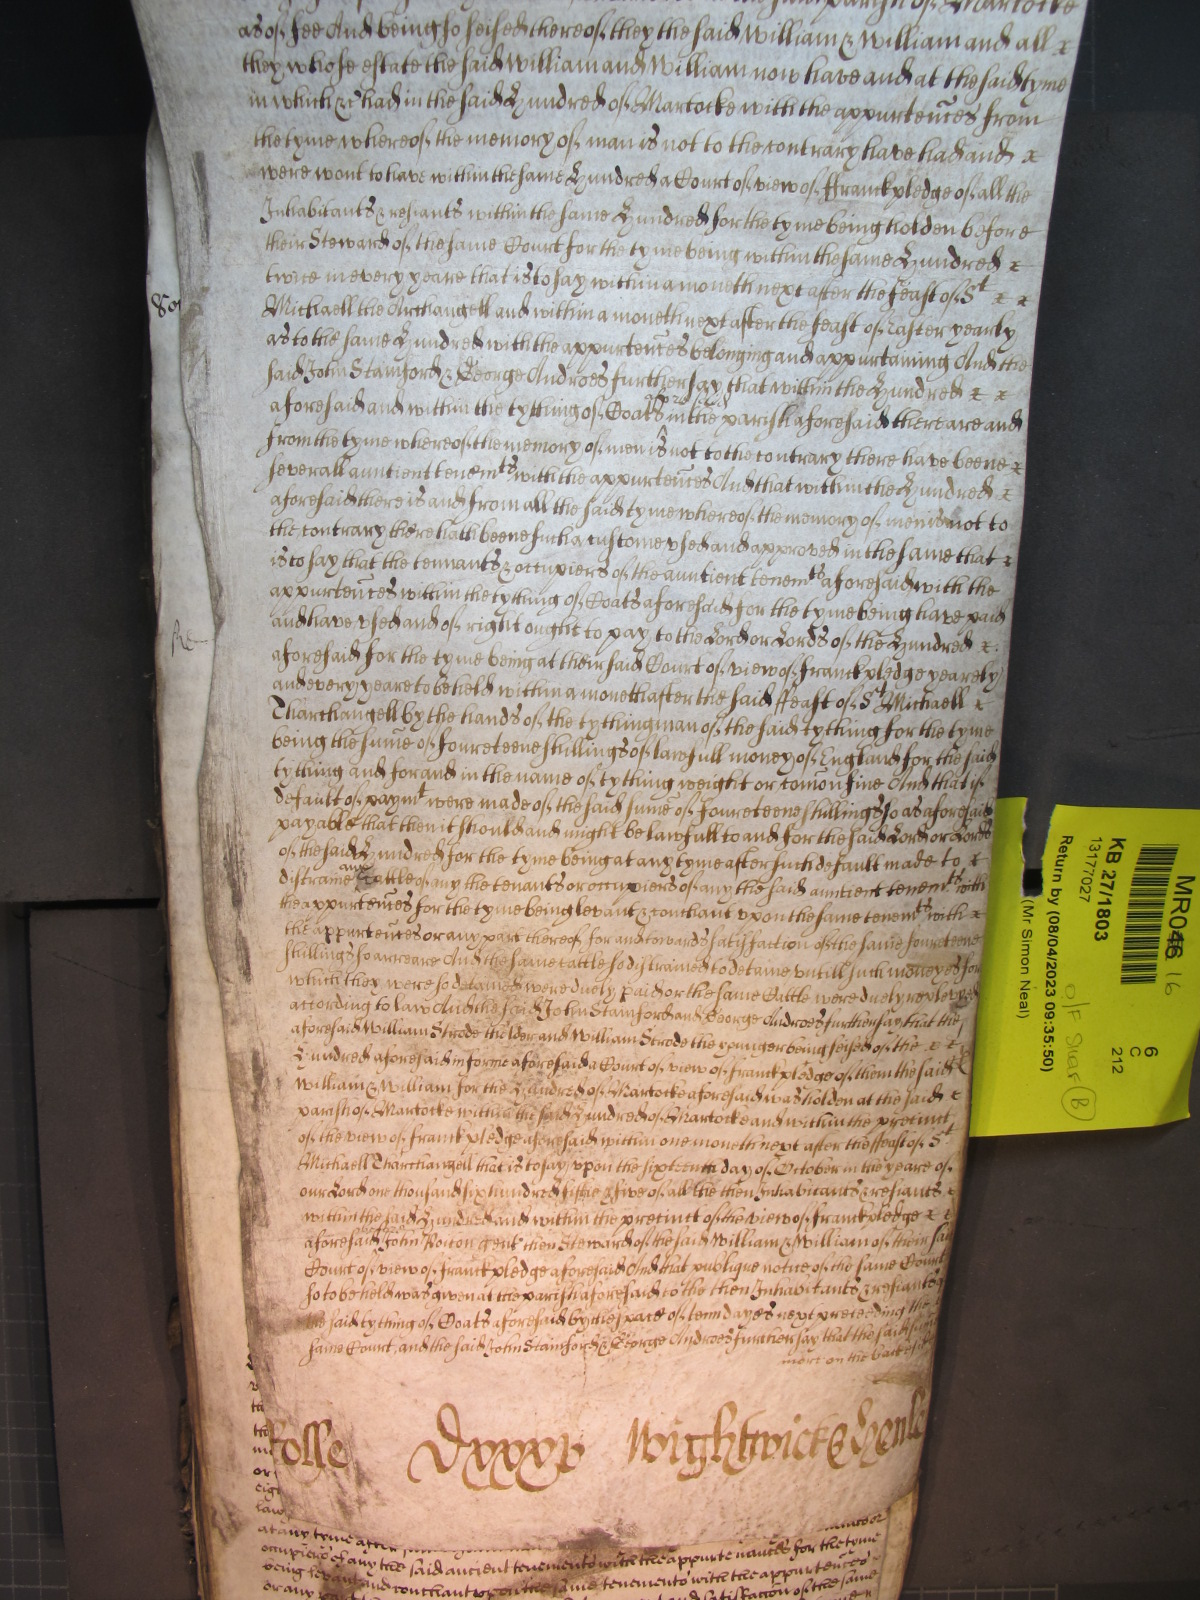 as of Fee And being so seised thereof they the said William & William and all
they whose estate the said William and William now have and at the said tyme
in which &c had in the said Hundred of Martocke with the appurtences from
the tyme whereof the memory of man is not to the contrary have had and
were wont to have within the same Hundred a Court of view of ffranckpledge of all the
Inhabitants & resiants within the same Hundred for the tyme being holden before
their Steward of the same Court for the tyme being within the same Hundred
twice in every yeare that is to say within a moneth next after the Feast of St
Michaell the Archangell and within a moneth next after the feast of Easter yearly
as to the same Hundred with the appurtences belonging and appurtaining And the
said John Stamford & George Androes further say that within the Hundred
aforesaid and within the tything of Coats in the parish aforesaid there are and
from the tyme whereof the memory of men is not to the contrary there have beene
severall auntient tenemts with the appurtences And that within the Hundred
aforesaid there is and from all the said tyme whereof the memory of men is not to
the contrary there hath beene such a custome used and approved in the same that
is to say that the tennants & occupiers of the auntient tenemts aforesaid with the
appurtences within the tything of Coats aforesaid for the tyme being have paid
and have vsed and of right ought to pay to the Lord or Lords of the Hundred
aforesaid for the tyme being at their said Court of view of franckpledge yearely
and every yeare to be held within a moneth after the said ffeast of St Michaell
Tharchangell by the hands of the tythingman of the said tything for the tyme
being the sume of foureteene shillings of lawfull money of England for the said
tything and for and in the name of tything weight or comon fine And that if
default of paymt were made of the said sume of foureteene shillings so as aforesaid
payable that then it should and might be lawfull to and for the said Lord or Lords
of the said Hundred for the tyme being at any tyme after such default made to
distraine any Cattle of any the tenants or occupiers of any the said auntient tenemts with
the appurtences for the tyme being levant & couchant vpon the same tenemts with
the appurtences or any part thereof for and towards satisfaction of the same foureteene
shillings so arreare And the same cattle so distrained to detaine untill such moneyes for
which they were so detained were duely paid or the same Cattle were duely replevyed
according to law And the said John Stamford and George Androes further say that the
aforesaid William Strode the elder and William Strode the younger being seised of the
Hundred aforesaid in forme aforesaid a Court of view of franckpledge of them the said
William & William for the Hundred of Martocke aforesaid was holden at the said
parish of Martocke within the said Hundred of Martocke and within the precinct
of the view of franckpledge aforesaid within one moneth next after the ffeast of St
Michaell Tharchangell that is to say vpon the sixteenth day of October in the yeare of
our Lord one thousand six hundred fiftie & five of all the then Inhabitants & resiants
within the said Hundred and within the precinct of the view of franckpledge
aforesaid John gent then Steward of the said William & William of their said
Court of view of franckpledge aforesaid And that publique notice of the same Court
so to be held was given at the parish aforesaid to the then Inhabitants & resiants
the said tything of Coats aforesaid by the space of tenn dayes next preceeding the
same Court, and the said John Stamford & George Androes further say that the said
more on the back
Rolle Dxxxv Wightwicke
at any tyme after
occupiers of any the said ancient tenements with the appurtenances for the tyme
being levant and couchant vpon the same tenements with the appurtences
or any satisfaction of the same
MR046
16
KB 27/1803
13177027
Return by (08/04/2023 09:35:50)
(Mr Simon Neal)
6
C
212
B